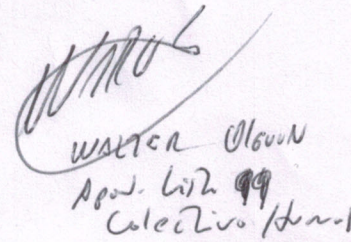 WALTER Olguin
Apod. Lista 99
Colectivo